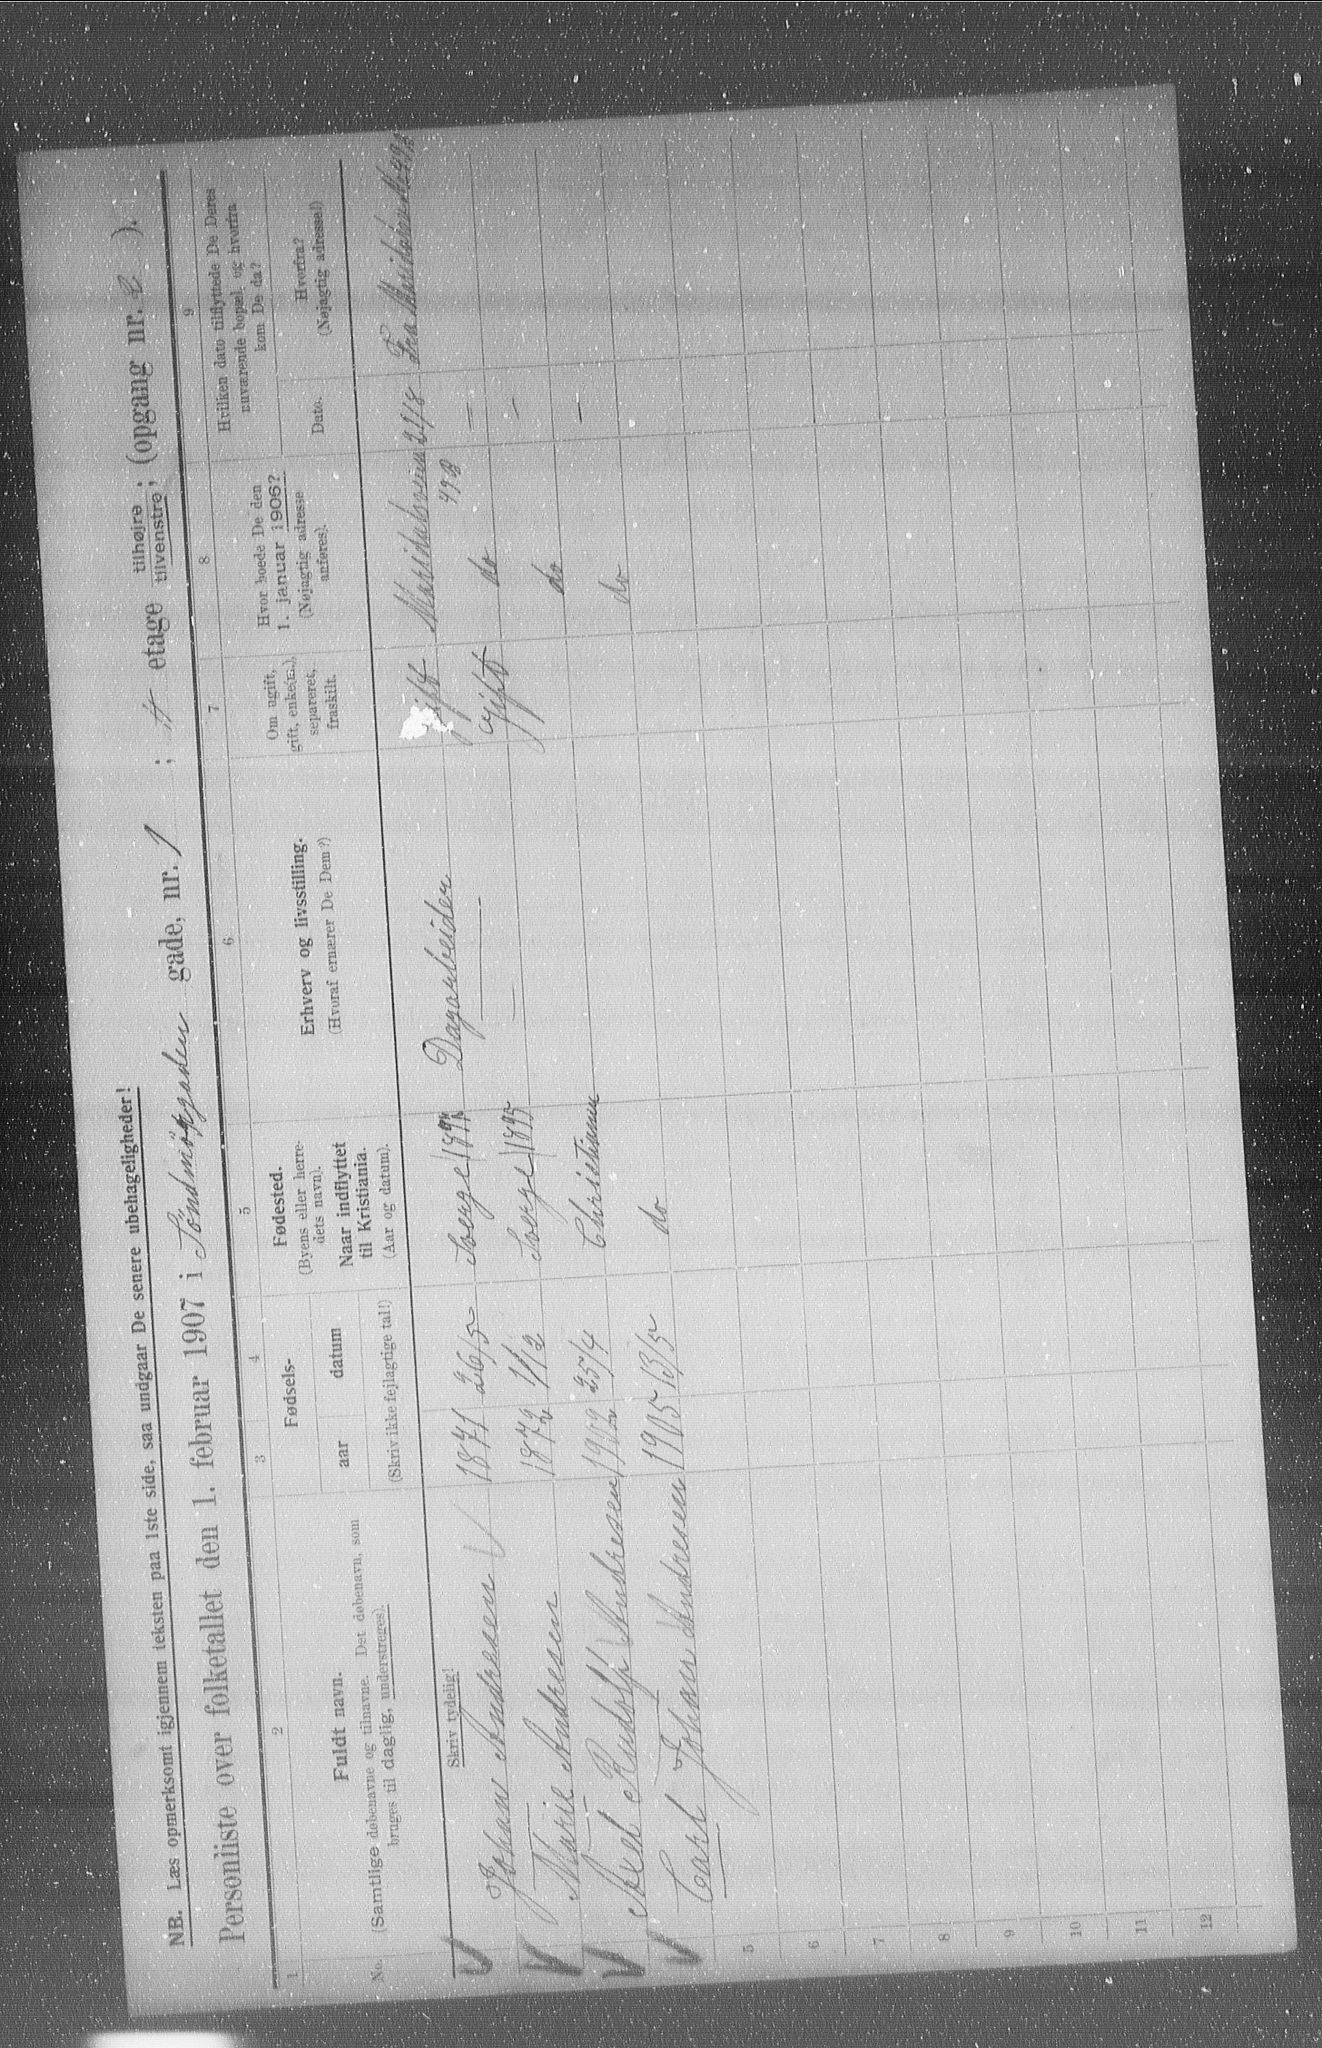 NB. Læs opmerksomt igjennem teksten paa 1ste side, saa undgaar De senere ubehageligheder!
Personliste over folketallet den 1. februar 1907 i Söndmörgaden gade, nr. 1 ; 4 etage tilhøjre tilvenstre; (opgang nr. 2 ).
1 2 3 4 5 6 7 8 9
No.
Fuldt navn.
(Samtlige døbenavne og tilnavne. Det døbenavn, som
bruges til daglig, understreges).
Fødsels-
aar datum
(Skriv ikke fejlagtige tal!)
Fødested.
(Byens eller herre-
dets navn).
Naar indflyttet
til Kristiania.
(Aar og datum).
Erhverv og livsstilling.
(Hvoraf ernærer De Dem?)
Om ugift,
gift, enke(E.),
separeret,
fraskilt.
Hvor boede De den
1. januar 1906?
(Nøjagtig adresse
anføres).
Hvilken dato tilflyttede De Deres
nuværende bopæl og hvorfra
kom De da?
Dato.
Hvorfra?
(Nøjagtig adresse!)
Skriv tydelig!
Johan Andresen 1871 26/5 Sverge Dagarbeider gift Maridalsveien 49B 21/8 Fra
Marie Andresen 1872 1/12 Sverge 1895 gift do
Axel Rudolf Andresen 1902 25/4 Christiania do
Carl Johan Andresen 1905 13/5 do do
5
6
7
8
9
10
11
12